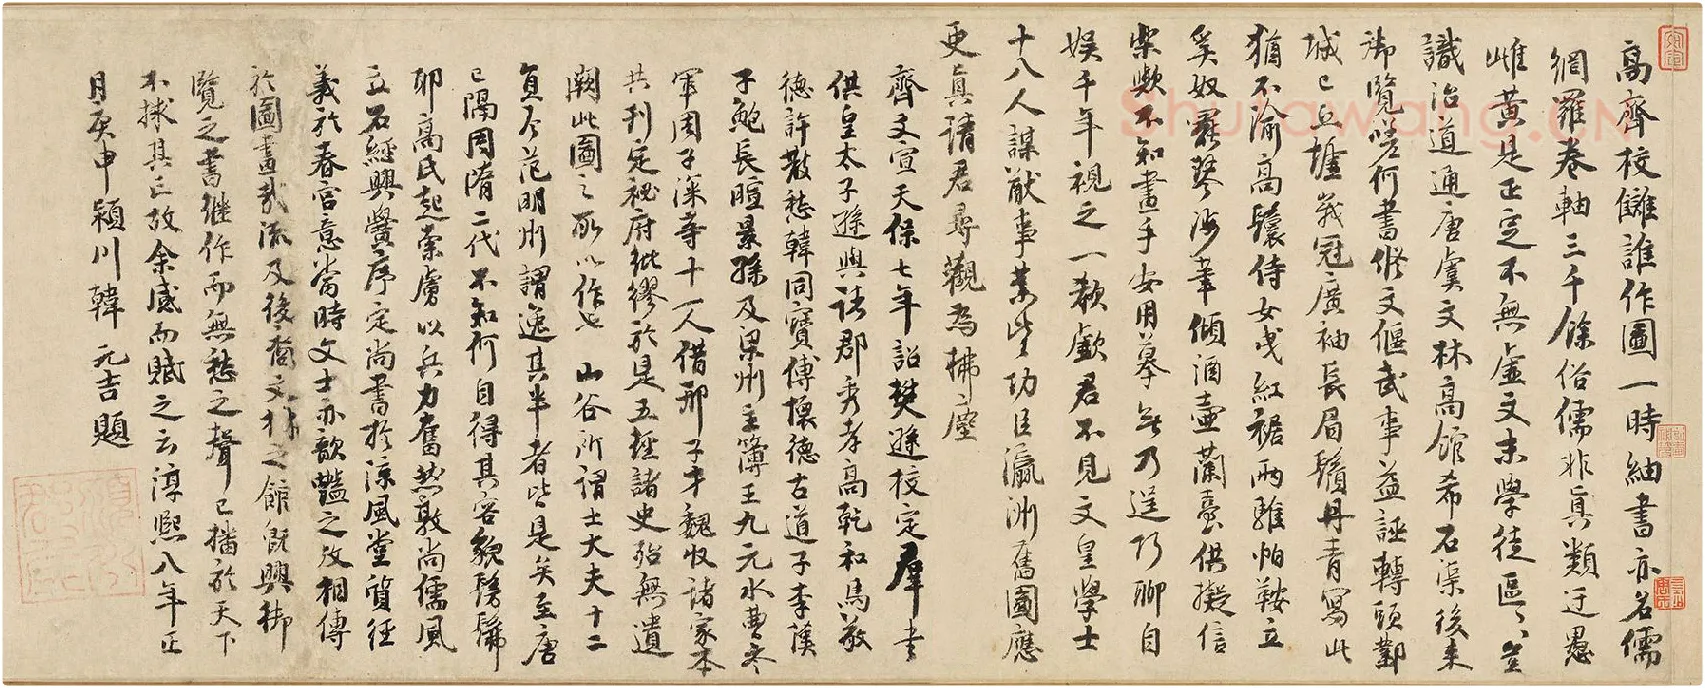 高齊校讎誰作圖一時紬書亦名儒
網羅卷軸三千餘俗儒非真類迂愚
雌黄是正定不無虚文末學徒區〻豈
識治道通唐虞文林高館希石渠後來
御覽嗟何書修文偃武事益誣轉頭鄴
城已丘墟峩冠廣袖長眉鬚丹青寫此
猶不渝高鬟侍女曳紅裾兩騅帕鞍立
奚奴羅琴涉筆傾酒壷蘭臺供擬信
樂歟不知畫手安用摹無乃逞巧聊自
娱千年視之一欷歔君不見文皇學士
十八人謀猷事業皆功臣瀛洲舊圖應
更真請君尋觀為拂塵
齊文宣天保七年詔樊遜校定羣書
供皇太子遜與諸郡秀孝高乾和馬敬
德許散愁韓同寶傅懷德古道子李漢
子鮑長暄景孫及梁州主簿王九元水曹參
軍周子深等十一人借邢子才魏收諸家本
共刊定秘府紕繆於是五經諸史殆無遺
闕此圖之所以作也 山谷所謂士大夫十二
員今范明州謂逸其半者皆是矣至唐
已隔周隋二代不知何自得其容貌髣髴
耶高氏起索虜以兵力奮然敦尚儒風
立石經興黌序定尚書於涼風堂質經
義於春宫意當時文士亦歆豔之故相傳
於圖畫哉流及後裔文林之館既興御
覽之書繼作而無愁之聲已播於天下
不捄其亡故余感而賦之云淳熙八年正
月庚申潁川韓 元吉題
Shufawang.CN